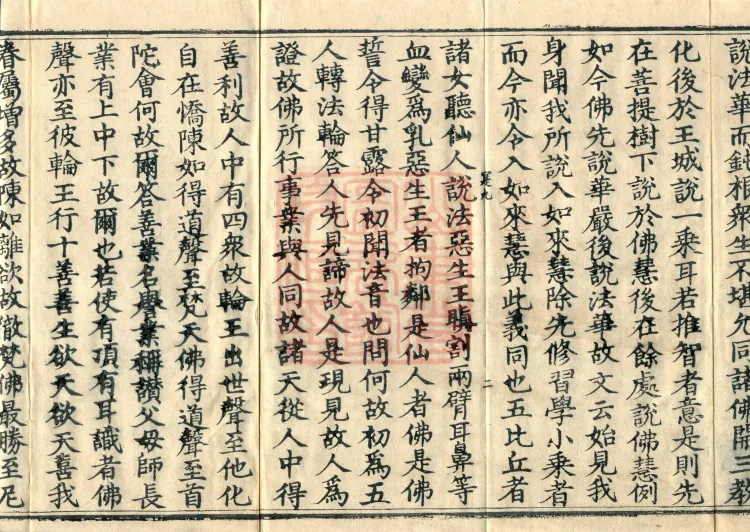 說法華而鈍根眾生不堪先同諸佛開三教
化後於王城說一乘耳若推智者意是則先
在菩提樹下說於佛慧後在餘處說佛慧例
如今佛先說華嚴後說法華故文云始見我
身聞我所說入如來慧除先修習學小乘者
而今亦令入如來慧與此義同也五比丘者
諸女聽仙人說法惡生王瞋割兩臂耳鼻等
血變為乳惡生王者拘鄰是仙人者佛是佛
誓令得甘露令初聞法音也問何故初為五
人轉法輪答人先見諦故人是現見故人為
證故佛所行事業與人同故諸天從人中得
善利故人中有四眾故輪王出世聲至他化
自在憍陳如得道聲至梵天佛得道聲至首
陀會何故爾答善業名譽業稱讚父母師長
業有上中下故爾也若使有頂有耳識者佛
聲亦至彼輪王行十善善生欲天欲天善我
眷屬增多故陳如離欲故徹梵佛最勝至尼